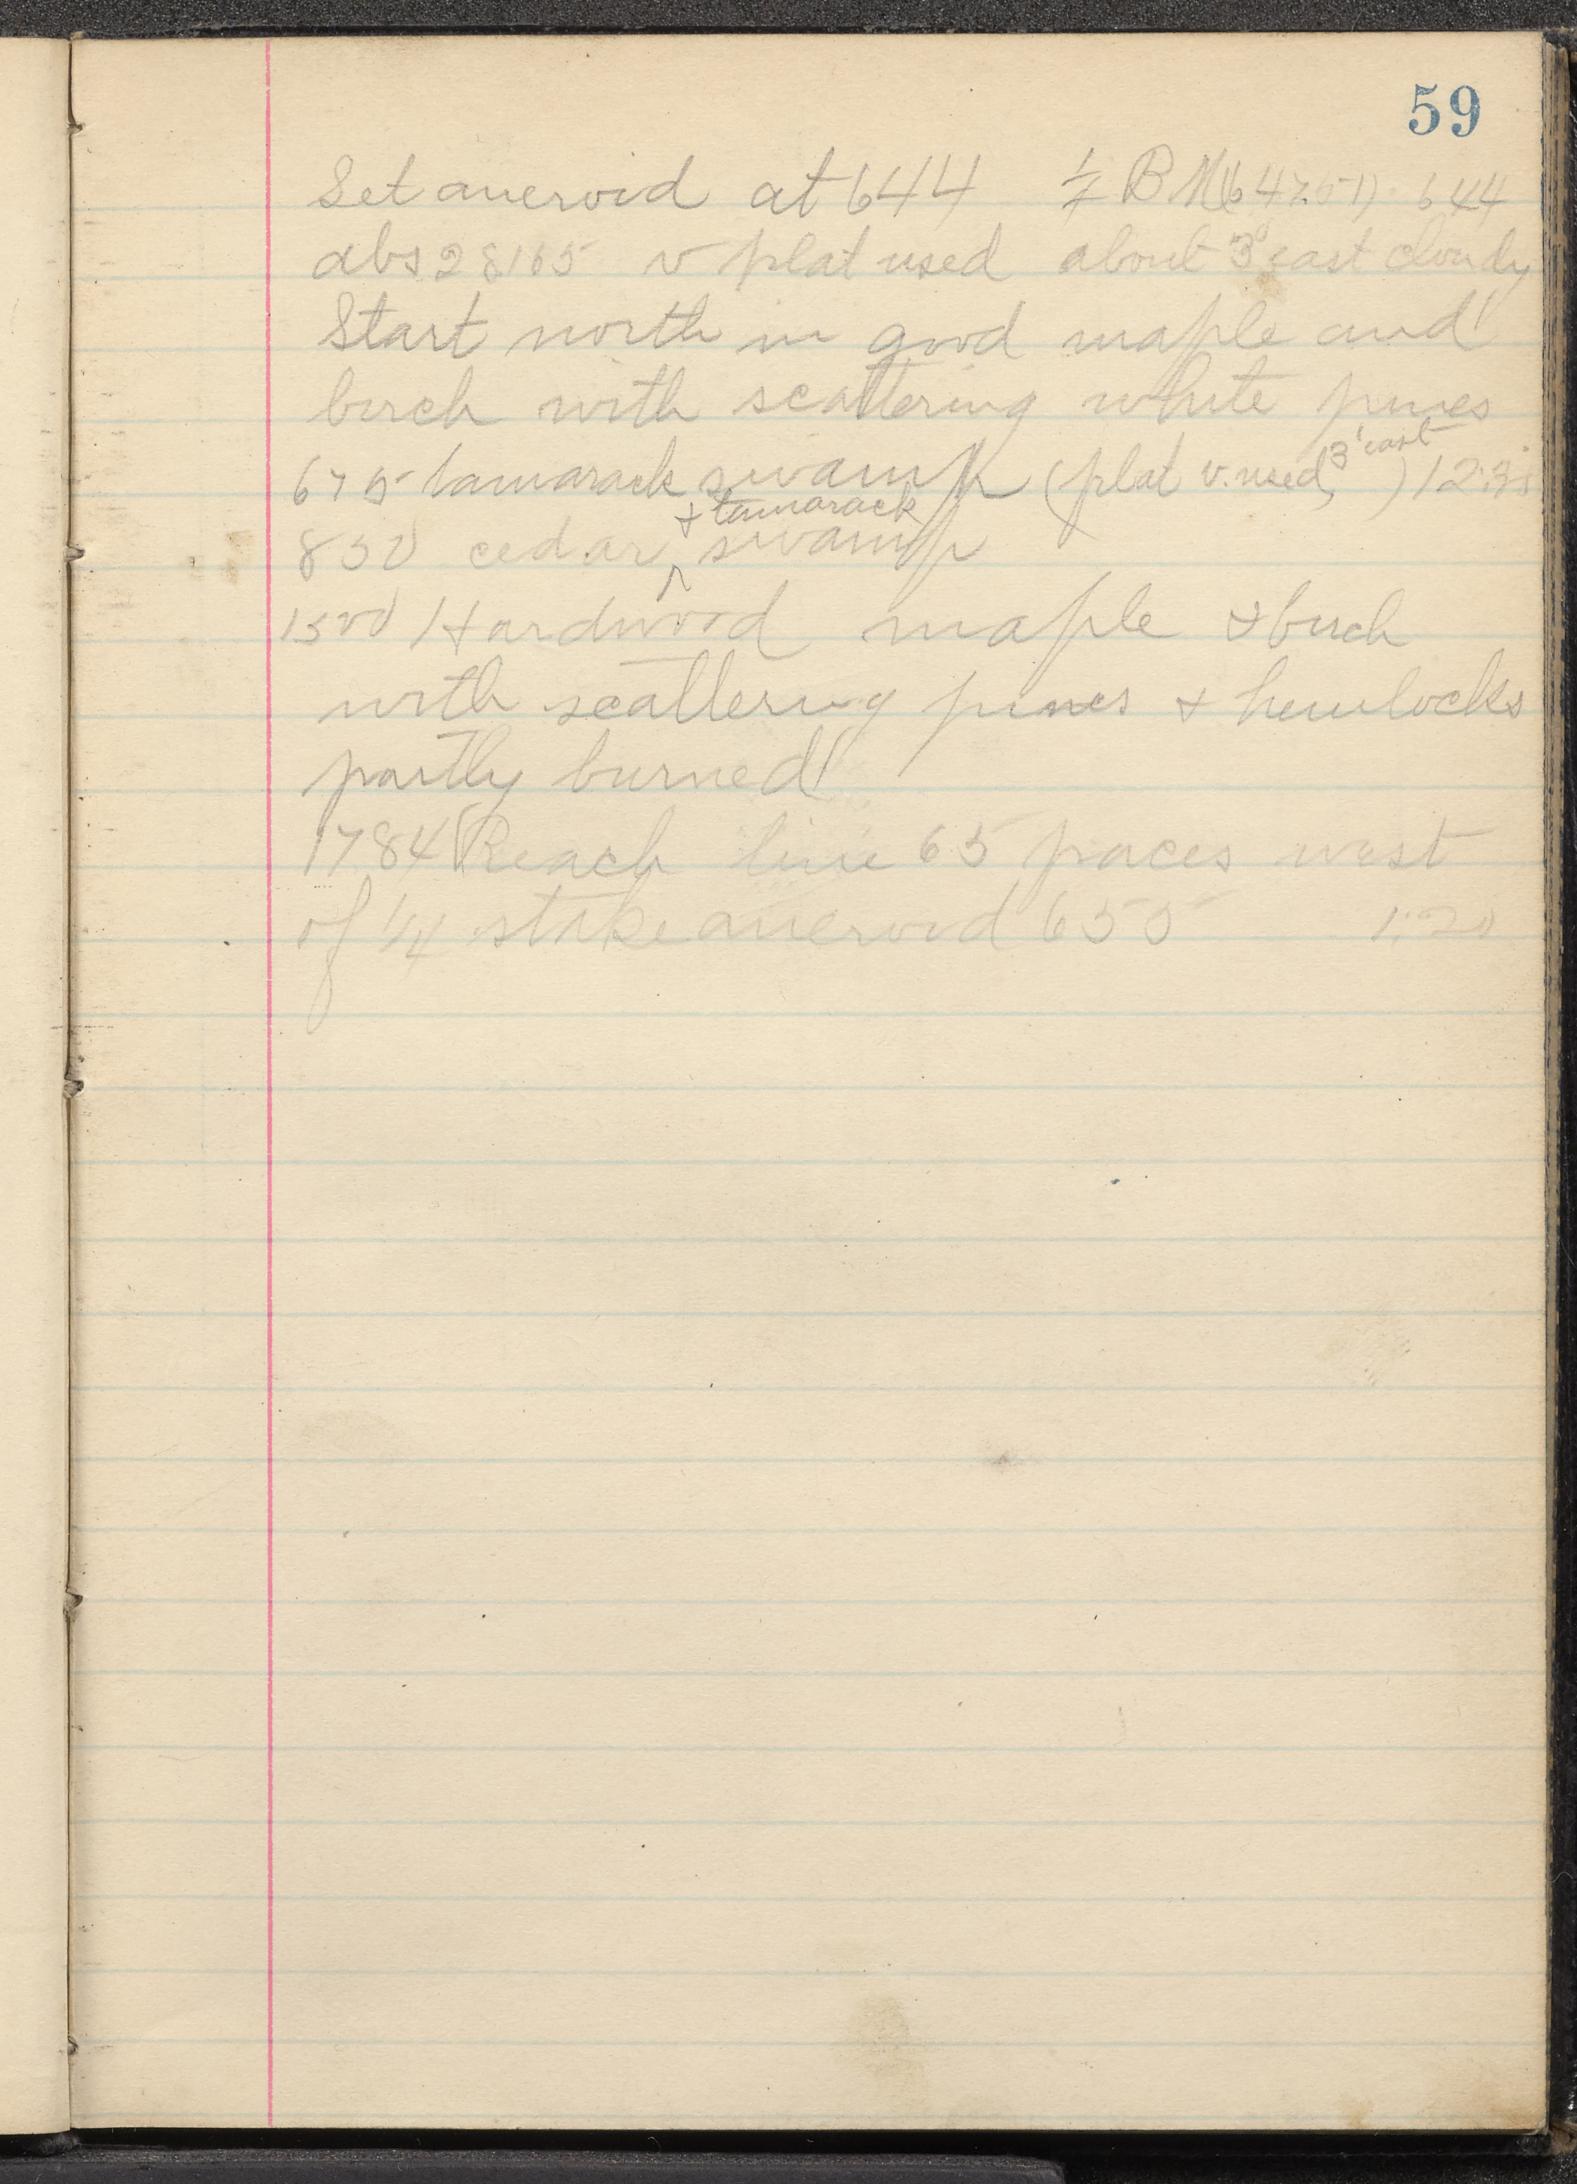 59
Set aneroid at 644 B M (647.51) 644
abs 28165 v plat used about 3° east cloudy
Start north in good maple and
birch with scattering white pines
675 tamarack swamp (plat v. used, 3° east) 12:35
850 cedar & tamarack swamp
1500 Hardwood maple & birch
with scattering pines & hemlocks
partly burned
1784 Reach line 65 paces west
of 1/4 stake aneroid 655 1:20